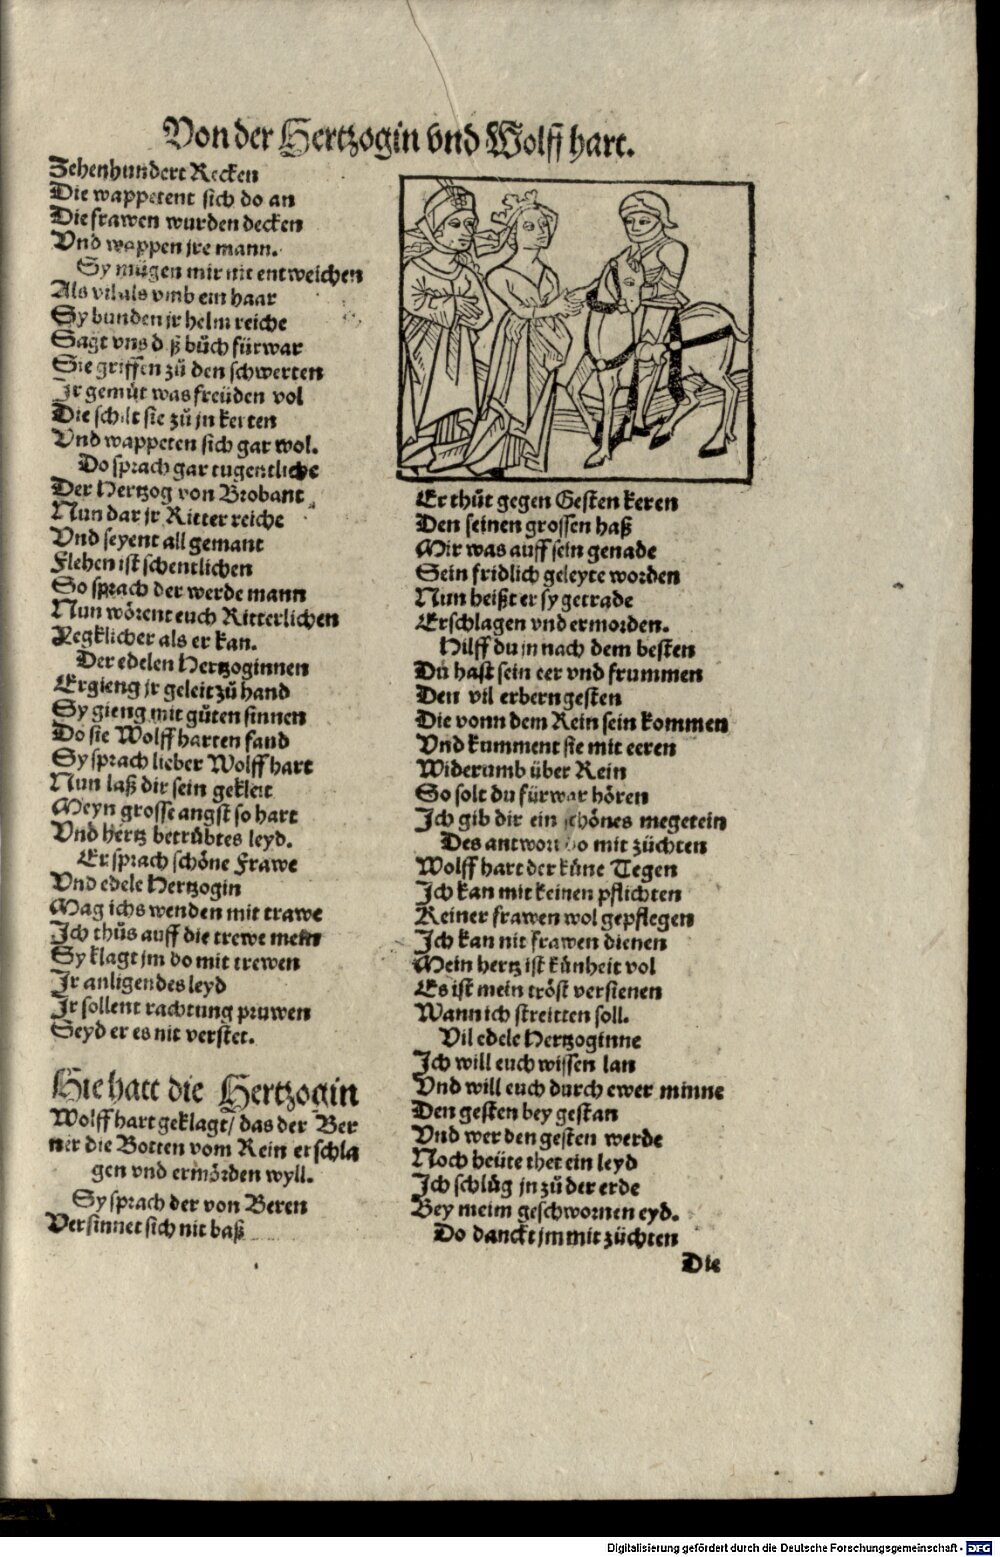 Von der Hertzogin vnd Wolff hart.
Zehenhundert Recken
Die wappetent sich do an
Die frawen wurden decken
Vnd wappen jre mann.
Sy mügen mir nit entweichen
Als vil als vmb ein haar
Sy bunden jr helm reiche
Sagt vns dß bůch fürwar
Sie griffen zů den schwerten
Jr gemüt was freüden vol
Die schilt sie zů jn kerten
Vnd wappeten sich gar wol.
Do sprach gar tugentliche
Der Hertzog von Brobant
Nun dar jr Ritter reiche
Vnd seyent all gemant
Flehen ist schentlichen
So sprach der werde mann
Nun wörent euch Ritterlichen
Regklicher als er kan.
Der edelen Hertzoginnen
Ergieng jr geleit zů hand
Sy gieng mit gůten sinnen
Do sie Wolff harten fand
Sy sprach lieber Wolff hart
Nun laß dir sein gekleit
Meyn grosse angst so hart
Vnd hertz betrübtes leyd.
Er sprach schöne Frawe
Vnd edele Hertzogin
Mag ichs wenden mit trawe
Jch thůs auff die trewe mein
Sy klagt jm do mit trewen
Jr anligendes leyd
Jr sollent rachtung pruwen
Seyd er es nit verstet.
Hie hatt die Hertzogin
Wolff hart geklagt / das der Ber
ner die Botten vom Rein erschla
gen vnd ermörden wyll.
Sy sprach der von Beren
Versinnet sich nit baß
Er thůt gegen Gesten keren
Den seinen grossen haß
Mir was auff sein genade
Sein fridlich geleyte worden
Nun heißt er sy getrade
Erschlagen vnd ermorden.
Hilff du jn nach dem besten
Du hast sein eer vnd frummen
Den vil erbern gesten
Die vonn dem Rein sein kommen
Vnd kumment sie mit eeren
Widerumb über Rein
So solt du fürwar hören
Jch gib dir ein schönes megetein
Des antwort do mit züchten
Wolff hart der küne Tegen
Jch kan mit keinen pflichten
Reiner frawen wol gepflegen
Jch kan nit frawen dienen
Mein hertz ist künheit vol
Es ist mein tröst versienen
Wann ich streitten soll.
Vil edele Hertzoginne
Jch will euch wissen lan
Vnd will euch durch ewer minne
Den gesten bey gestan
Vnd wer den gesten werde
Noch heüte thet ein leyd
Jch schlůg jn zů der erde
Bey meim geschwornen eyd.
Do danckt jm mit züchten
Die
Digitalisierung gefördert durch die Deutsche Forschungsgemeinschaft - DFG